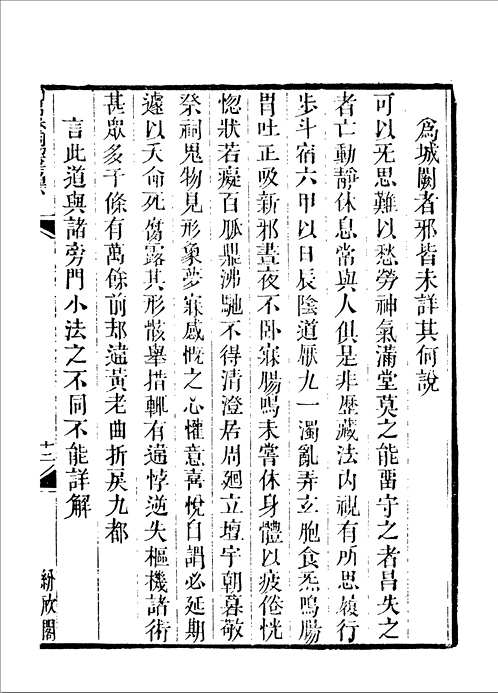 為城闕者邪皆未詳其何說
可以无思難以愁勞神氣滿堂莫之能畱守之者昌失之
者亡動靜休息常與人俱是非歷藏法内視有所思履行
步斗宿六甲以日辰陰道厭九一濁亂弄玄胞食炁鳴腸
胃吐正吸新邪晝夜不卧寐腸鳴未嘗休身體以疲倦恍
惚狀若癡百脈鼎沸馳不得清澄居周廻立壇宇朝暮敬
祭祠鬼物見形象夢寐感慨之心懽意喜悅自謂必延期
遽以夭命死腐露其形骸舉措輒有違悖逆失樞機諸術
甚眾多千條有萬餘前却違黃老曲折戾九都
言此道與諸旁門小法之不同不能詳解
十二
紛欣閣